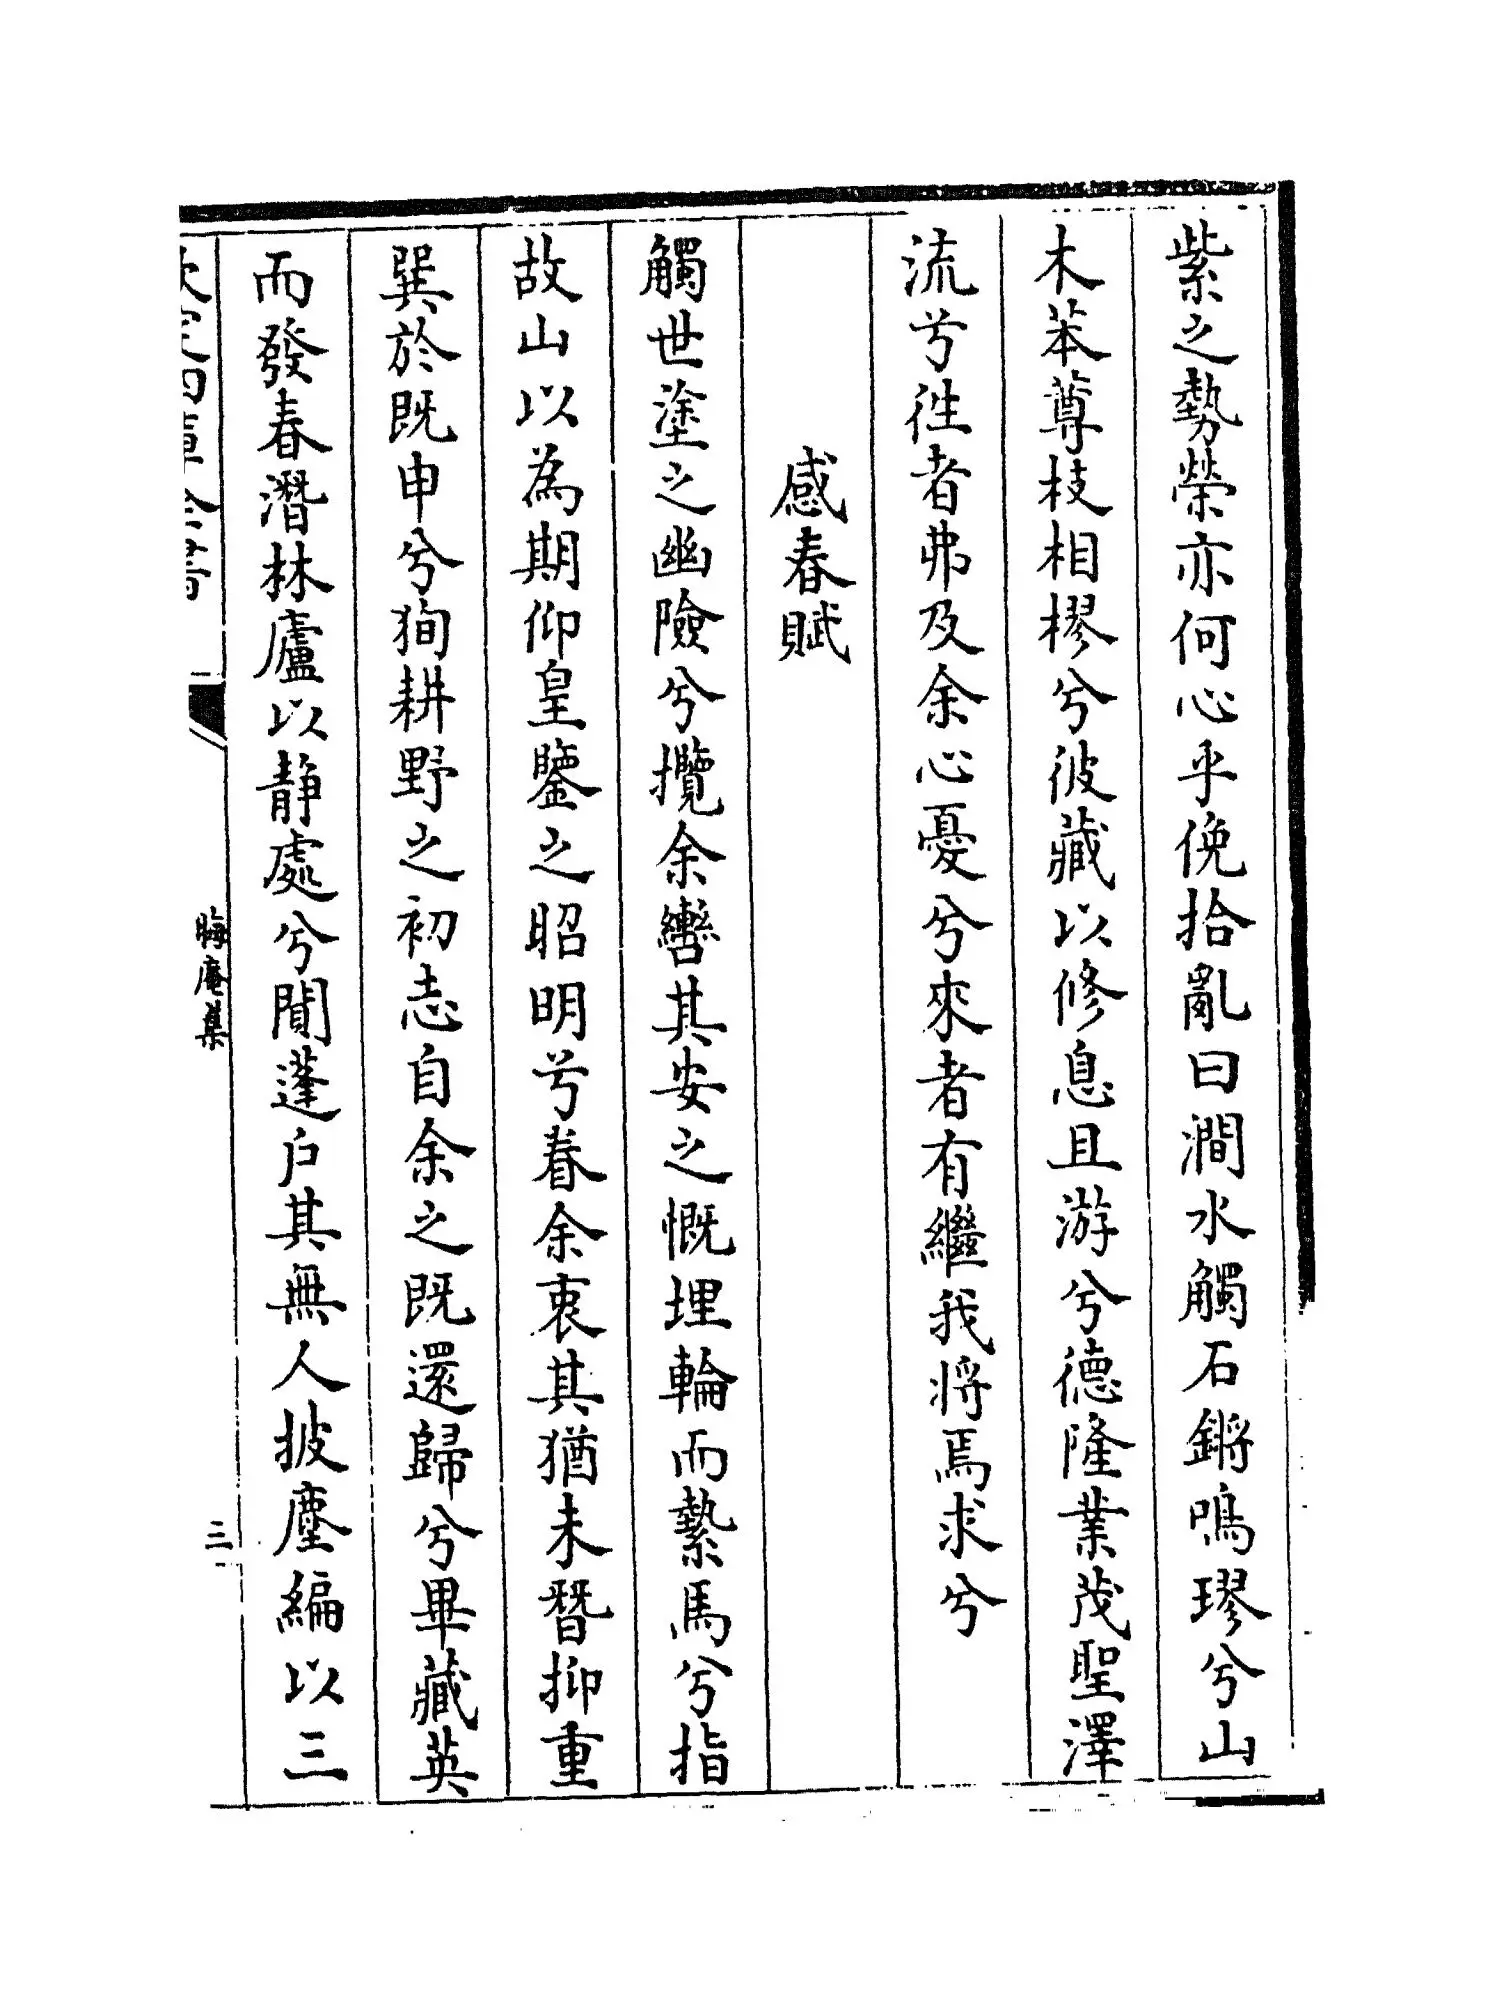 紫之勢榮亦何心乎俛拾亂曰澗水觸石鏘鳴璆兮山
木苯䔿枝相樛兮彼藏以修息且游兮德隆業茂聖澤
流兮徃者弗及余心憂兮來者有繼我將焉求兮
感春賦
觸世塗之幽險兮攬余轡其安之慨埋輪而縶馬兮指
故山以為期仰皇鑒之昭明兮眷余衷其猶未替抑重
巽於既申兮狥耕野之初志自余之既還歸兮畢藏英
而發春潛林廬以静處兮閴蓬户其無人披塵編以三
晦庵集
三